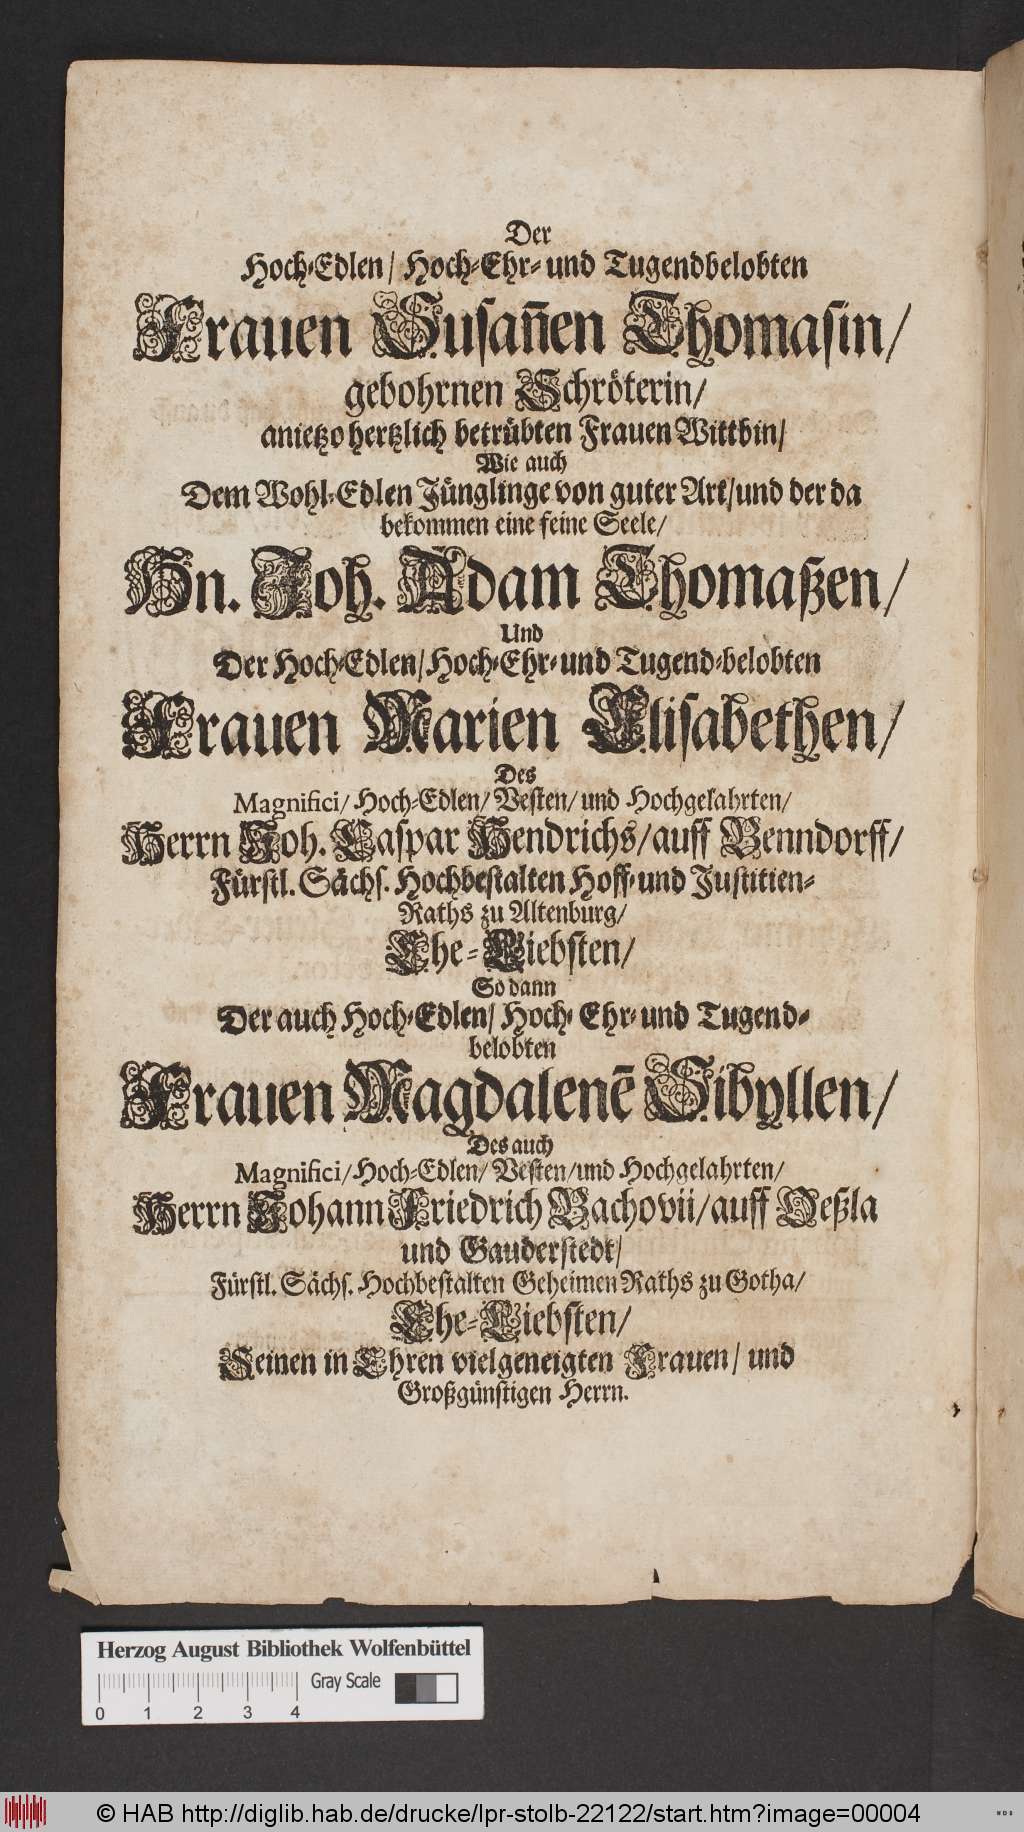 Der
Hoch-Edlen/ Hoch-Ehr- und Tugendbelobten
Frauen Susañen Thomasin/
gebohrnen Schröterin/
anietzo hertzlich betrübten Frauen Wittbin/
Wie auch
Dem Wohl-Edlen Jünglinge von guter Art/ und der da
bekommen eine feine Seele/
Hn. Joh. Adam Thomaßen/
Und
Der Hoch-Edlen/ Hoch-Ehr- und Tugend-belobten
Frauen Marien Elisabethen/
Des
Magnifici/ Hoch-Edlen/ Vesten/ und Hochgelahrten/
Herrn Joh. Caspar Hendrichs/ auff Benndorff/
Fürstl. Sächs. Hochbestalten Hoff- und Justitien-
Raths zu Altenburg/
Ehe-Liebsten/
So dann
Der auch Hoch-Edlen/ Hoch- Ehr- und Tugend-
belobten
Frauen Magdalenē Sibyllen/
Des auch
Magnifici/ Hoch-Edlen/ Vesten/ und Hochgelahrten/
Herrn Johann Friedrich Bachovii/ auff Oeßla
und Gauderstedt/
Fürstl. Sächs. Hochbestalten Geheimen Raths zu Gotha/
Ehe-Liebsten/
Seinen in Ehren vielgeneigten Frauen/ und
Großgünstigen Herrn.
Herzog August Bibliothek Wolfenbüttel
Gray Scale
0 1 2 3 4
© HAB http://diglib.hab.de/drucke/lpr-stolb-22122/start.htm?image=00004